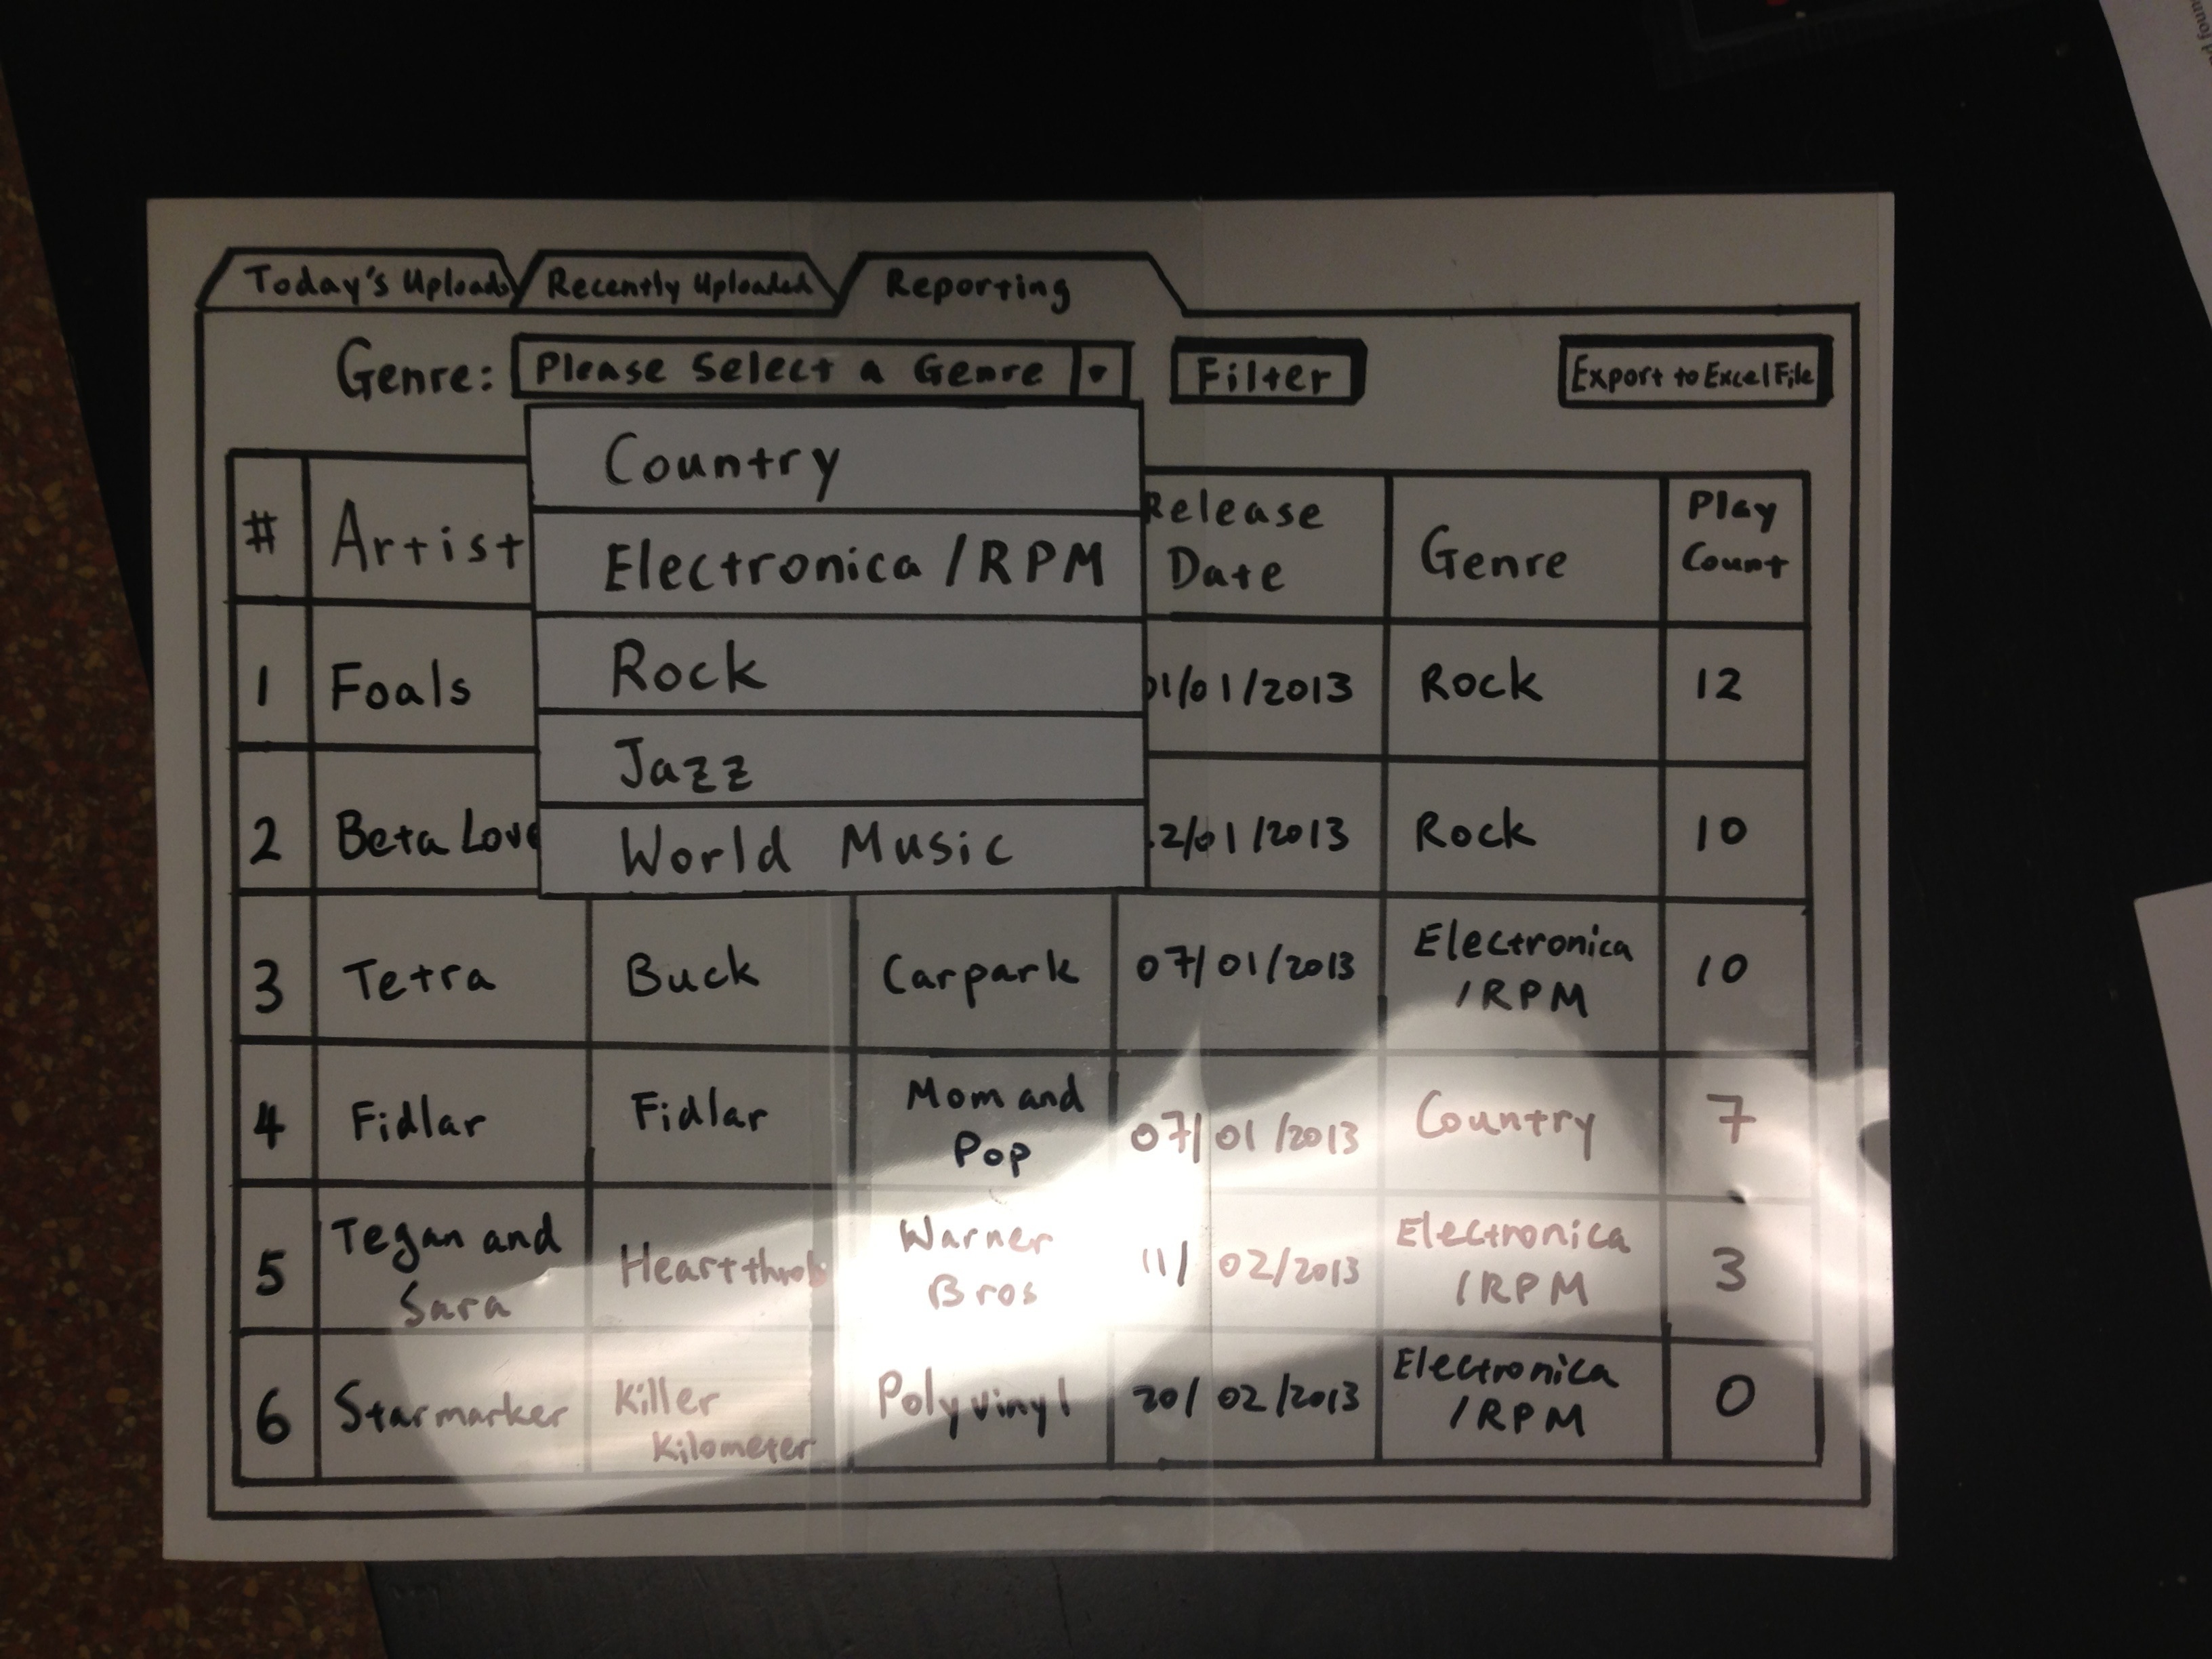 Today's Uploads
Recently Uploaded
Reporting
Genre: Please Select a Genre
Filter
Export to Excel File
Country
Electronica /RPM
Rock
Jazz
World Music
#
Artist
Release
Date
Genre
Play
Count
1
Foals
01/01/2013
Rock
12
2
Beta Love
2/01/2013
Rock
10
3
Tetra
Buck
Carpark
07/01/2013
Electronica
/RPM
10
4
Fidlar
Fidlar
Mom and
Pop
07/01/2013
Country
7
5
Tegan and
Sara
Heartthrob
Warner
Bros
11/02/2013
Electronica
/RPM
3
6
Starmarker
Killer
Kilometer
Polyvinyl
20/02/2013
Electronica
/RPM
0